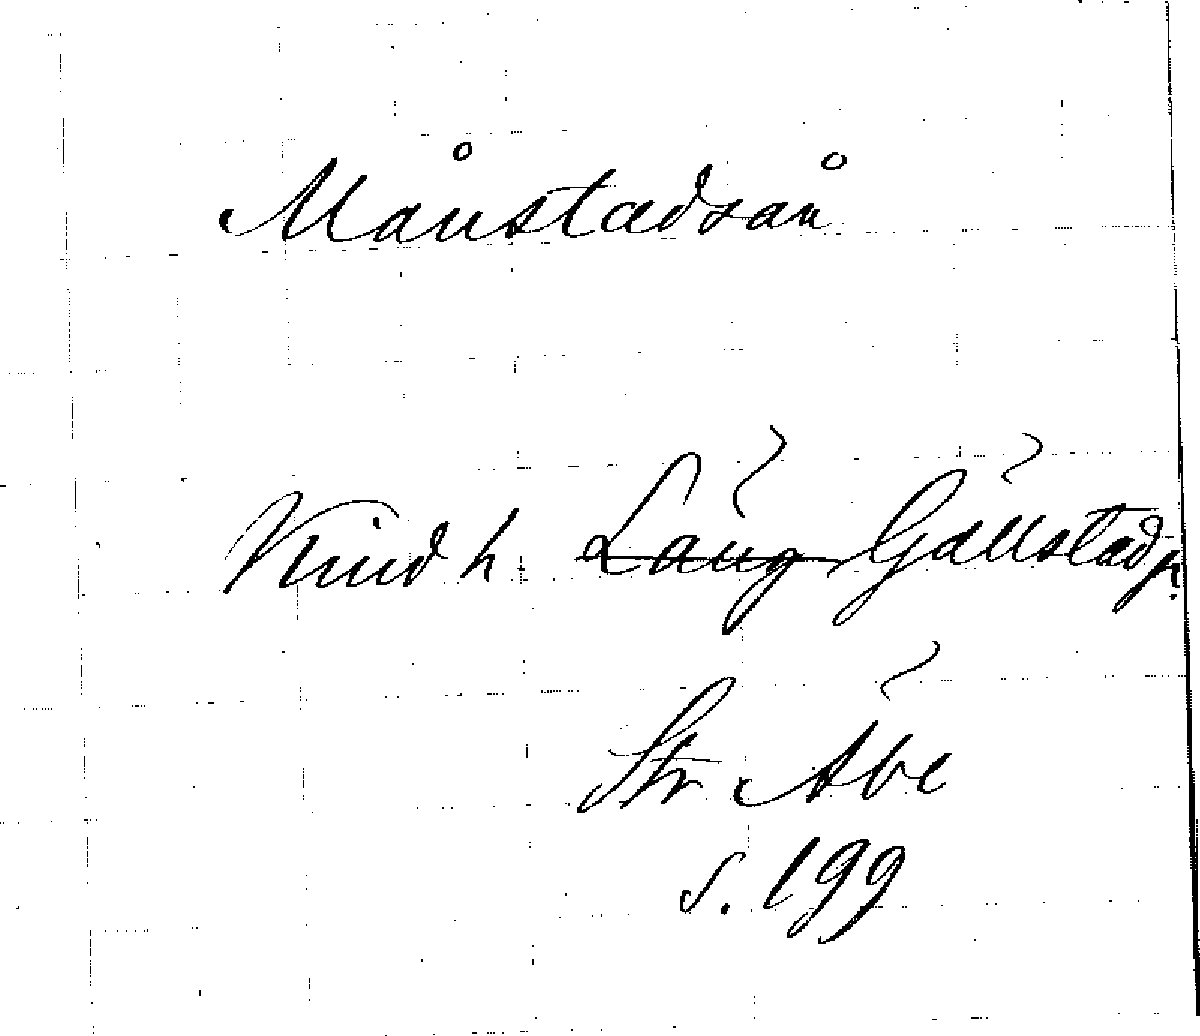 Månstadsån
Kind h. Lång Gällstad p.
Str Åbe
s. 199